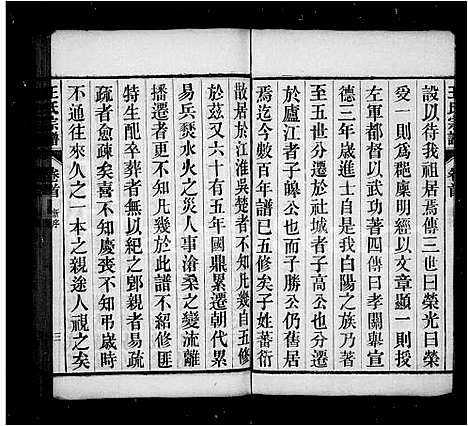 王氏宗譜
卷首
設以待我祖居焉傳三世曰榮光曰榮
受一則為郡廩明經以文章顯一則授
左軍都督以武功著四傳曰孝關舉宣
德三年歲進士自是我白陽之族乃著
至五世分遷於社城者子高公也分遷
於廬江者子皥公也子勝公仍舊居
焉迄今數百年譜已五修矣子姓蕃衍
散居於江淮吳楚者不知凡幾自五修
於茲又六十有五年國鼎累遷朝代累
易兵燹水火之災人事滄桑之變流離
播遷者更不知凡幾於此譜不紹修匪
特生配卒葬者無以紀之鄭親者易疏
疏者愈疎矣喜不知慶喪不知弔歲時
不通往來久之一本之親途人視之矣
王氏宗譜
卷首
新序
三